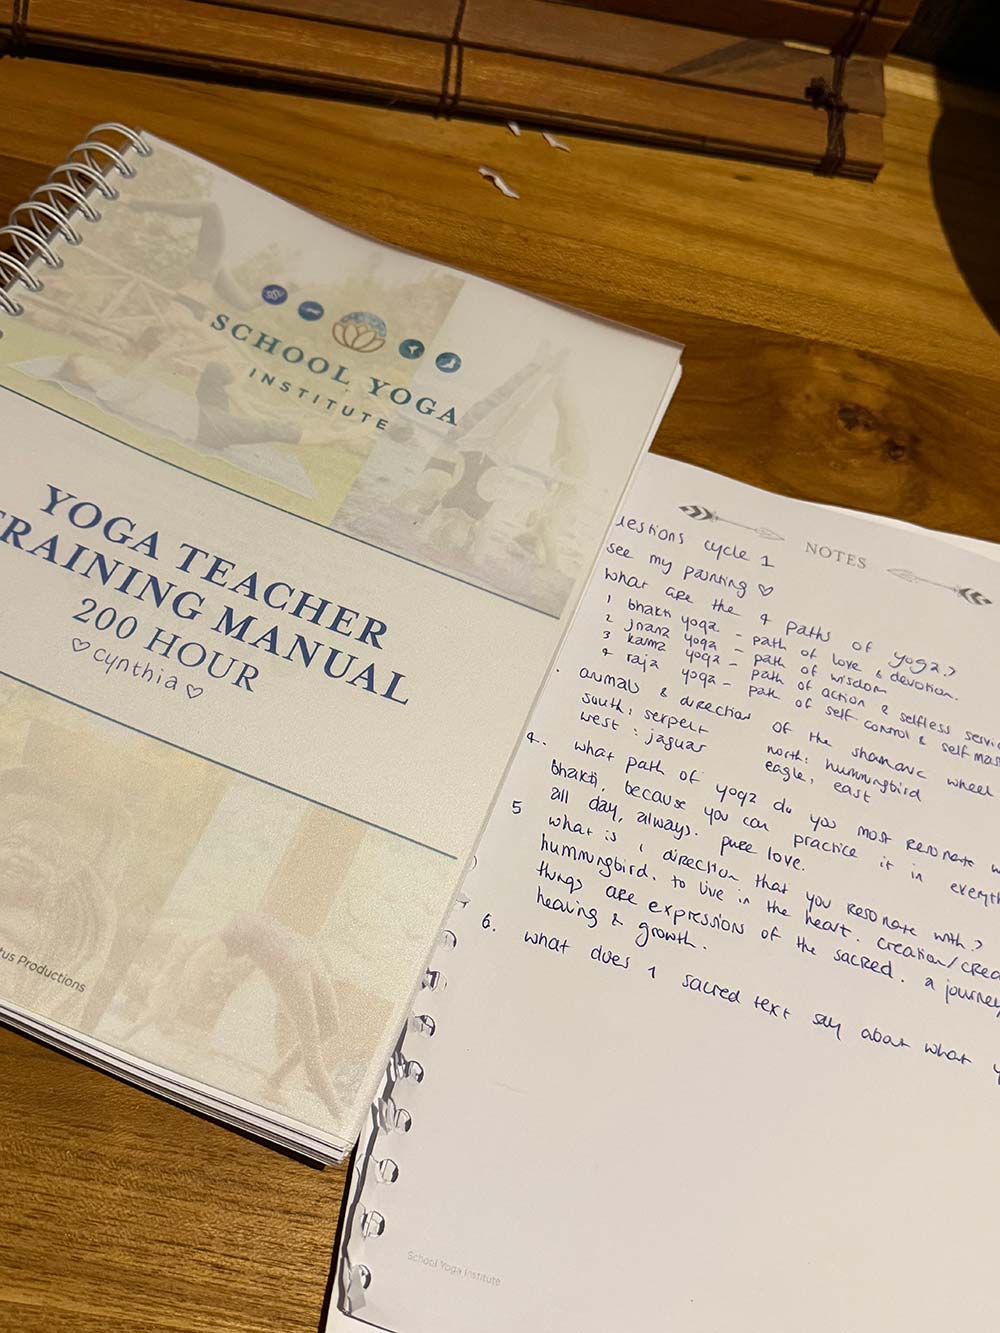 SCHOOL YOGA
INSTITUTE
YOGA TEACHER
TRAINING MANUAL
200 HOUR
♡ cynthia ♡
tus Productions
NOTES
uestions cycle 1
see my painting ♡
what are the 4 paths of yoga?
1 bhakti yoga - path of love & devotion.
2 jnana yoga - path of wisdom
3 karma yoga - path of action & selfless servic
4 raja yoga - path of self control & self mas
animals & direction of the shamanic wheel
south: serpent north: hummingbird
west: jaguar eagle, east
4. what path of yoga do you most resonate w
bhakti, because you can practice it in everyth
all day, always. pure love.
5 what is 1 direction that you resonate with?
hummingbird. to live in the heart. creation/crea
things are expressions of the sacred. a journey
healing & growth.
6. what does 1 sacred text say about what y
School Yoga Institute